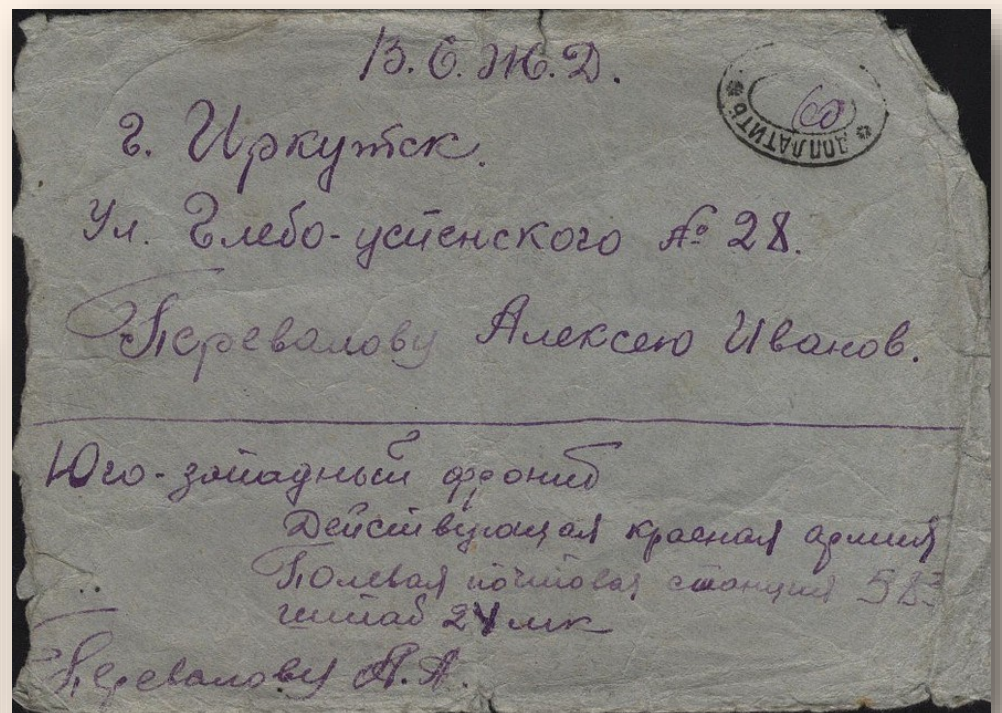 В.С.Ж.Д.
ДОПЛАТИТЬ
г. Иркутск.
Ул. Глебо-успенского № 28.
Перевалову Алексею Иванов.
Юго-западный фронт
Действующая красная армия
Полевая почтовая станция
штаб 24 мк
Перевалову А.А.